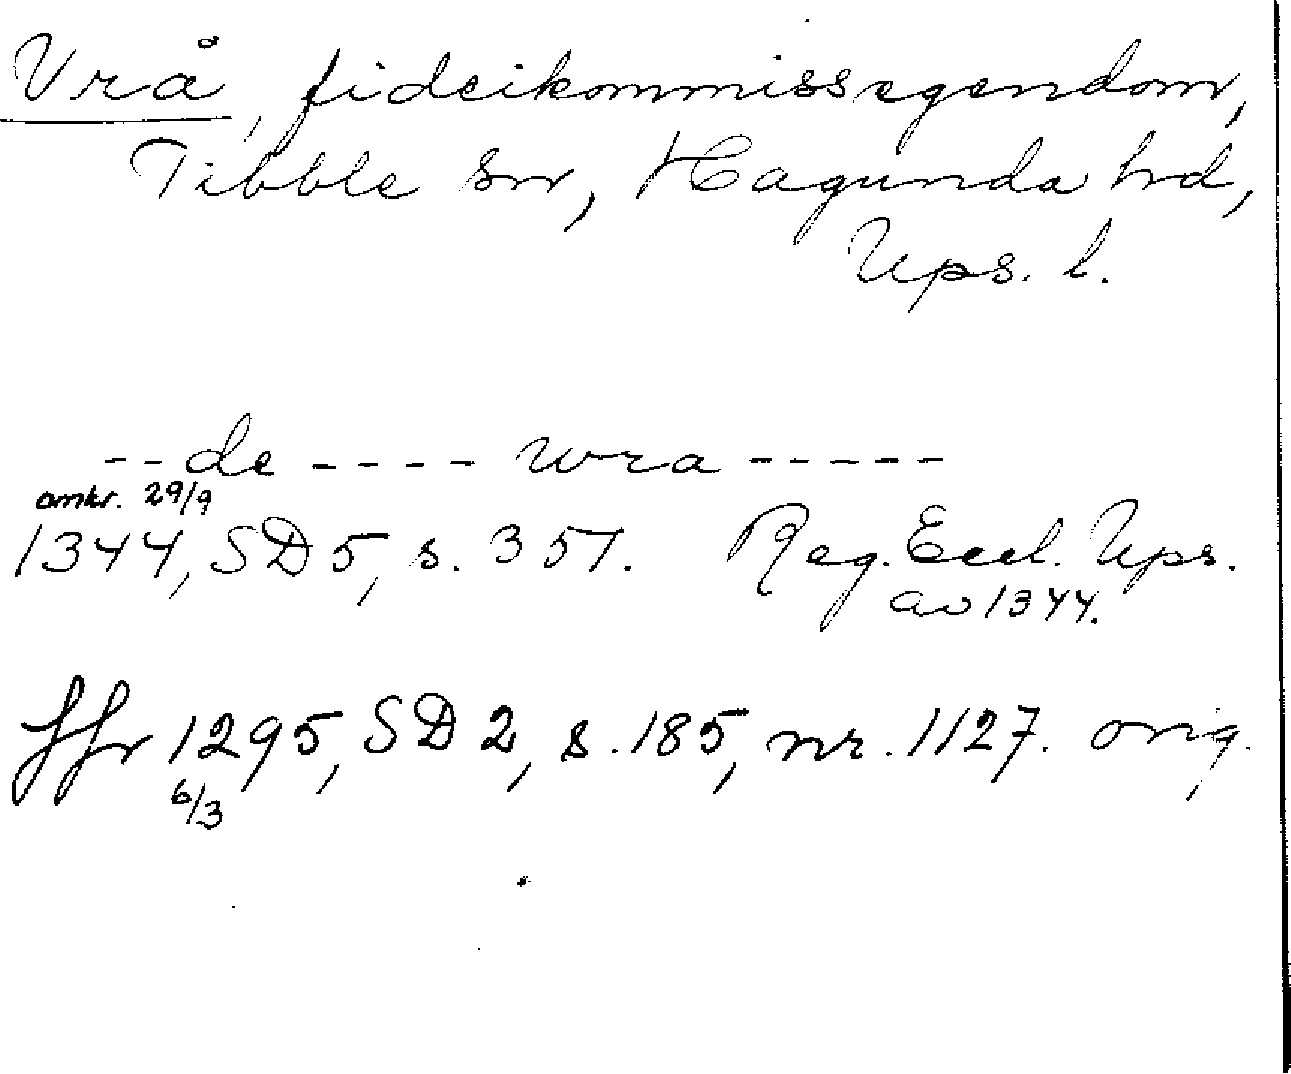 Vrå, fideikommissegendom,
Tibble sn, Hagunda hd,
Ups. l.
-- de ---- wra -----
omkr. 29/9
1344, SD 5, s. 351. Reg. Eccl. Ups.
av 1344.
Jfr 1295, SD 2, s. 185, nr. 1127. orig.
6/3